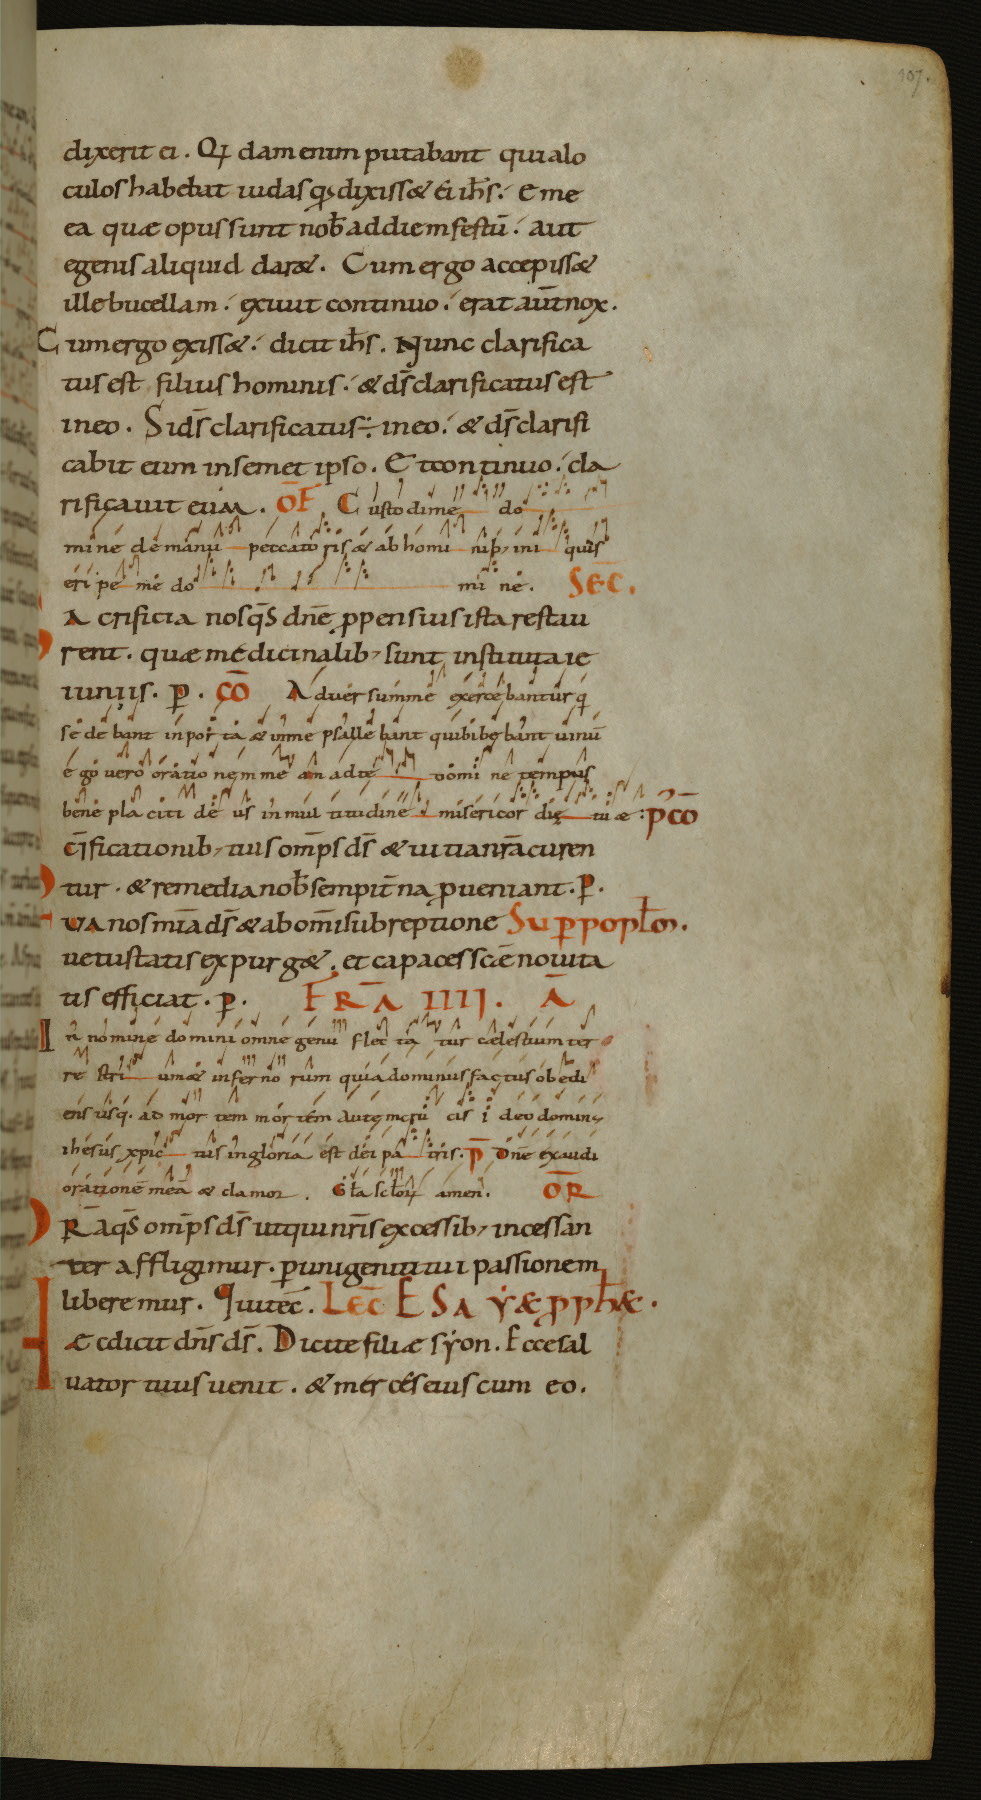 107.
dixerit ei. Qdam enim putabant quia lo
culos habebat iudas qđ dixissæ ei ihs. Eme
ea quæ opus sunt nob ad diem festū. aut
egenis aliquid daræ. Cum ergo accepissæ
ille bucellam. exiuit continuo. erat aut nox.
Cum ergo exissæ. dicit ihs. Nunc clarifica
tus est filius hominis. & ds clarificatus est
in eo. Si ds clarificatus ÷ in eo. & ds clarifi
cabit eum in semet ipso. Et continuo cla
rificauit eum. OF Custodi me do
mine de manu peccatoris & ab homi nib; ini quis
eripe me do mi ne. SEC.
A crificia nos qs dne ppensius ista restau
rent. quæ medicinalib; sunt instituta ie
iuniis. p. CO Aduersum me exercebantur q
sedebant in porta & in me psallebant qui bibebant uinū
ego uero orationem meam ad te domine tempus
bene placiti deus in multitudine misericordię tuæ: PCO
cificationib; tuis omps ds & uitia nra curen
tur. & remedia nob sempitna pueniant. p.
ua nos mia ds & ab omi subreptione Sup poplm.
uetustatis expurgæ. et capaces scæ nouita
tis efficiat. p. FRA IIII. A
In nomine domini omne genu flectatur cælestium ter
restrium & infernorum quia dominus factus obedi
ens usq. ad mortem mortem autem crucis i deo dominus
ihesus xpic tus in gloria est dei patris. P Dne exaudi
orationem meā & clamor. Gla sclorum amen. OR
PRA qs omps ds ut qui nris excessib; incessan
ter affligimur. p unigeniti tui passionem
liberemur. Qui tec. Lec ESAYÆ pphæ.
Hæc dicit dns ds. Dicite filiæ syon. Ecce sal
uator tuus uenit. & merces eius cum eo.